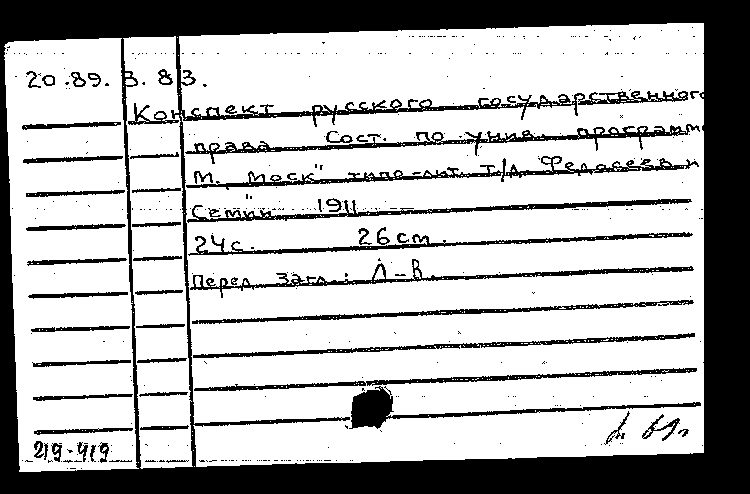 20.89. 3. 83.
Конспект русского государственного
права Сост. по унив. программ
М., "Моск" типо-лит. Т/Д Федасеев и
Семин 1911
24с. 26 cm.
Перед загл.: Л-В.
219-419
69г